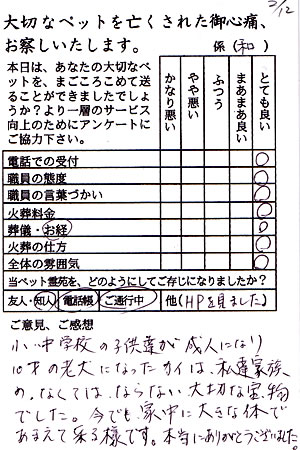 2/12
大切なペットを亡くされた御心痛、
お察しいたします。
係(和)
本日は、あなたの大切なペッ
トを、まごころこめて送
ることができましたでしょ
うか？より一層のサービス
向上のためにアンケートに
ご協力下さい。
かなり悪い
やや悪い
ふつう
まあまあ良い
とても良い
電話での受付 ○
職員の態度 ○
職員の言葉づかい ○
火葬料金 ○
葬儀・お経 ○
火葬の仕方 ○
全体の雰囲気 ○
当ペット霊苑を、どのようにしてご存じになりましたか？
友人・知人 電話帳 ご通行中 他(HPを見ました)
ご意見、ご感想
小、中学校の子供達が成人になり
10才の老犬になったカイは、私達家族
の、なくては、ならない大切な宝物
でした。今でも家中に大きな体で
あまえて来る様です。本当にありがとうございました。